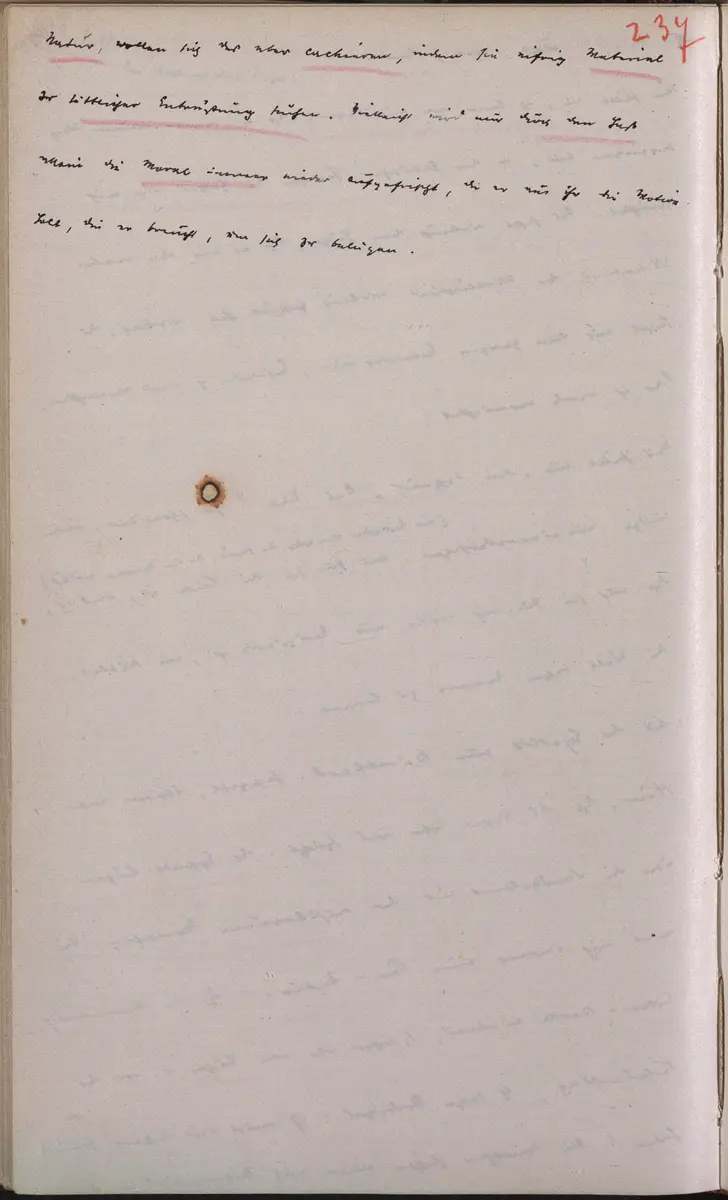 237
Natur, wollen sich das aber cachieren, indem sie eifrig Material
zur sittlichen Entrüstung suchen. Vielleicht wird nur durch den Haß
allein die Moral immer wieder aufgefrischt, da er aus ihr die Motive
holt, die er braucht, um sich zu belügen.